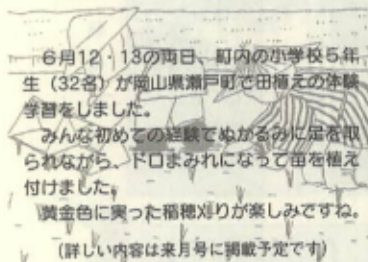 6月12・13の両日、町内の小学校5年
生(32名)が岡山県瀬戸町で田植えの体験
学習をしました。
みんな初めての経験でぬかるみに足を取
られながら、ドロまみれになって苗を植え
付けました。
黄金色に実った稲穂刈りが楽しみですね。
(詳しい内容は来月号に掲載予定です)